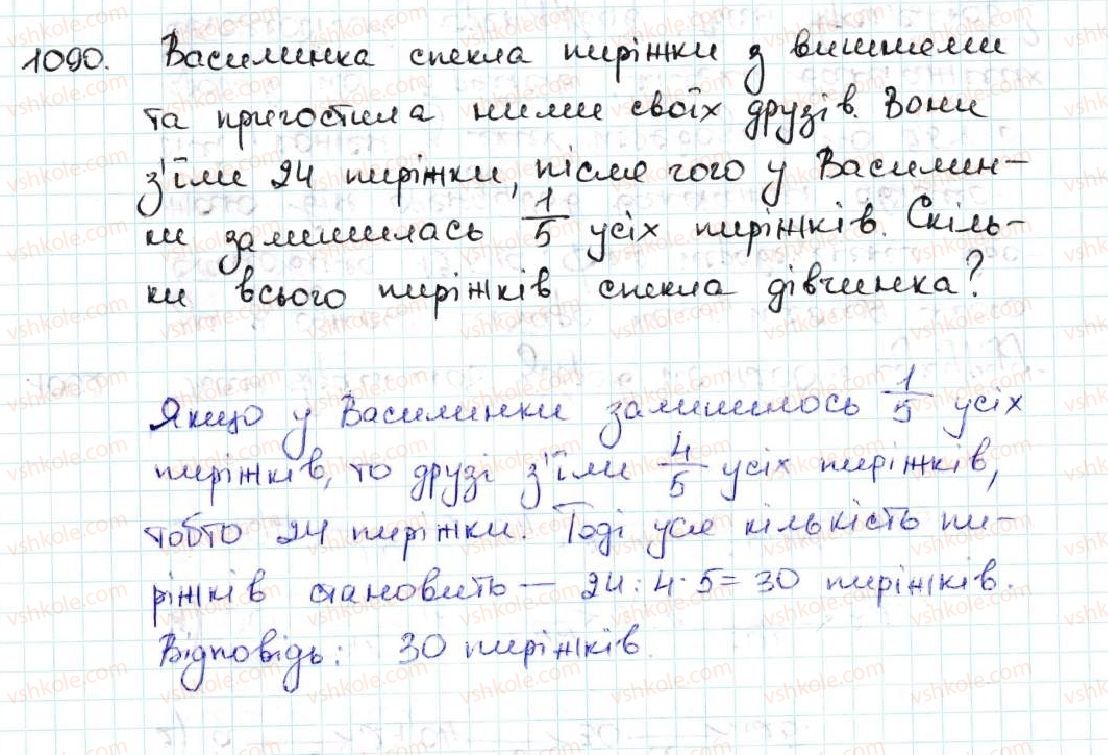 1090. Василинка спекла пиріжки з вишнями
та пригостила ними своїх друзів. Вони
з'їли 24 пиріжки, після чого у Василин-
ки залишилась 1/5 усіх пиріжків. Скіль-
ки всього пиріжків спекла дівчинка?
Якщо у Василинки залишилось 1/5 усіх
пиріжків, то друзі з'їли 4/5 усіх пиріжків,
тобто 24 пиріжки. Тоді уся кількість пи-
ріжків становить — 24 : 4 · 5 = 30 пиріжків.
Відповідь: 30 пиріжків.
vshkole.com